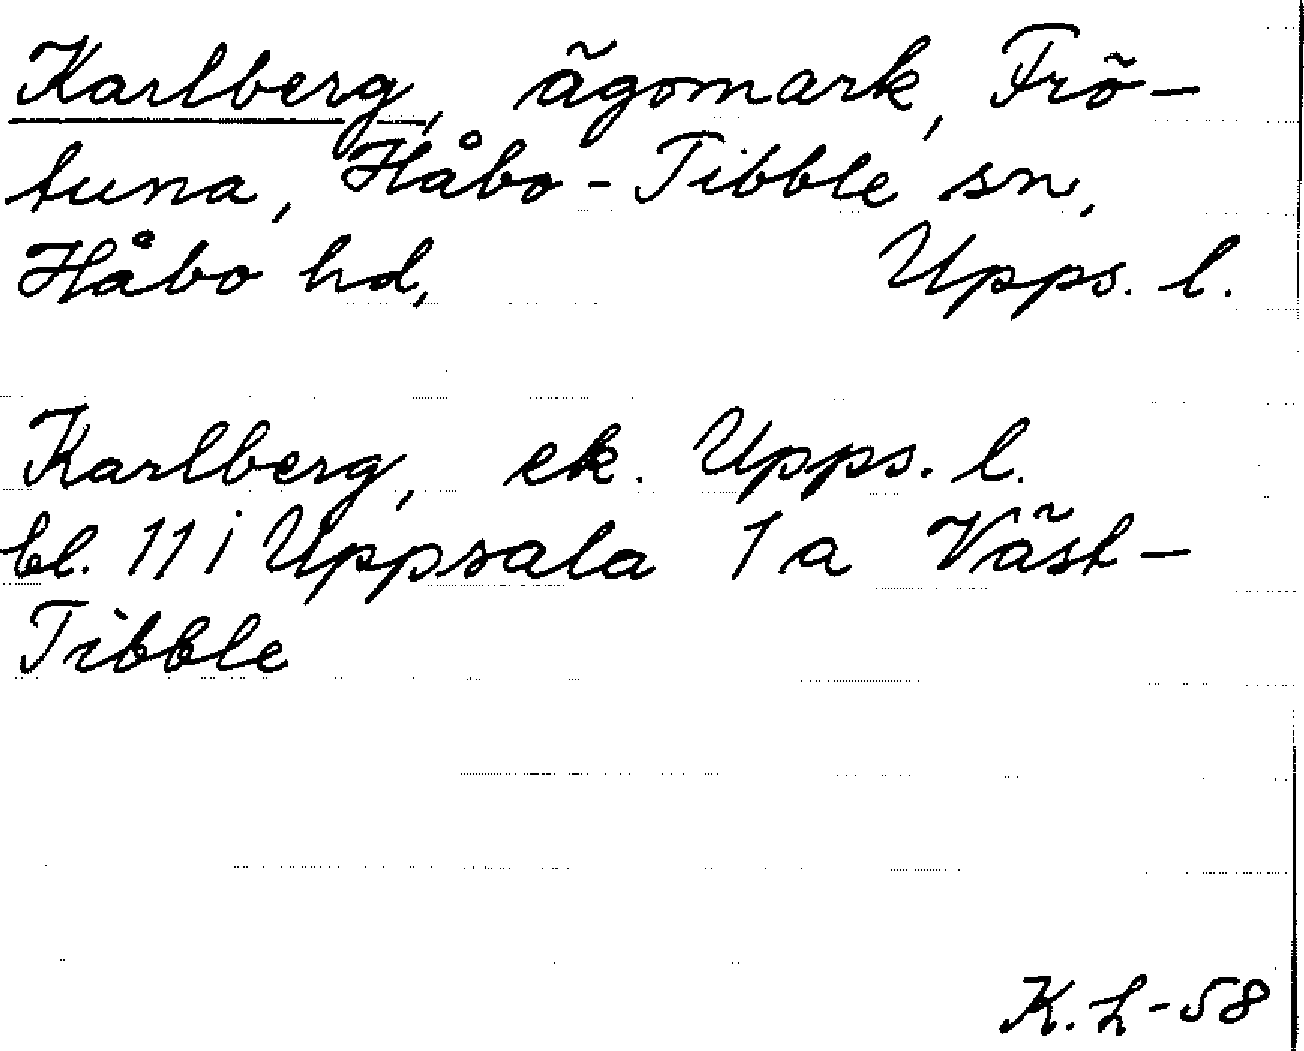 Karlberg, ägomark, Frö-
tuna, Håbo-Tibble sn,
Håbo hd, Upps. l.
Karlberg, ek. Upps. l.
bl. 11 i Uppsala 1 a Väst-
Tibble
K. L-58